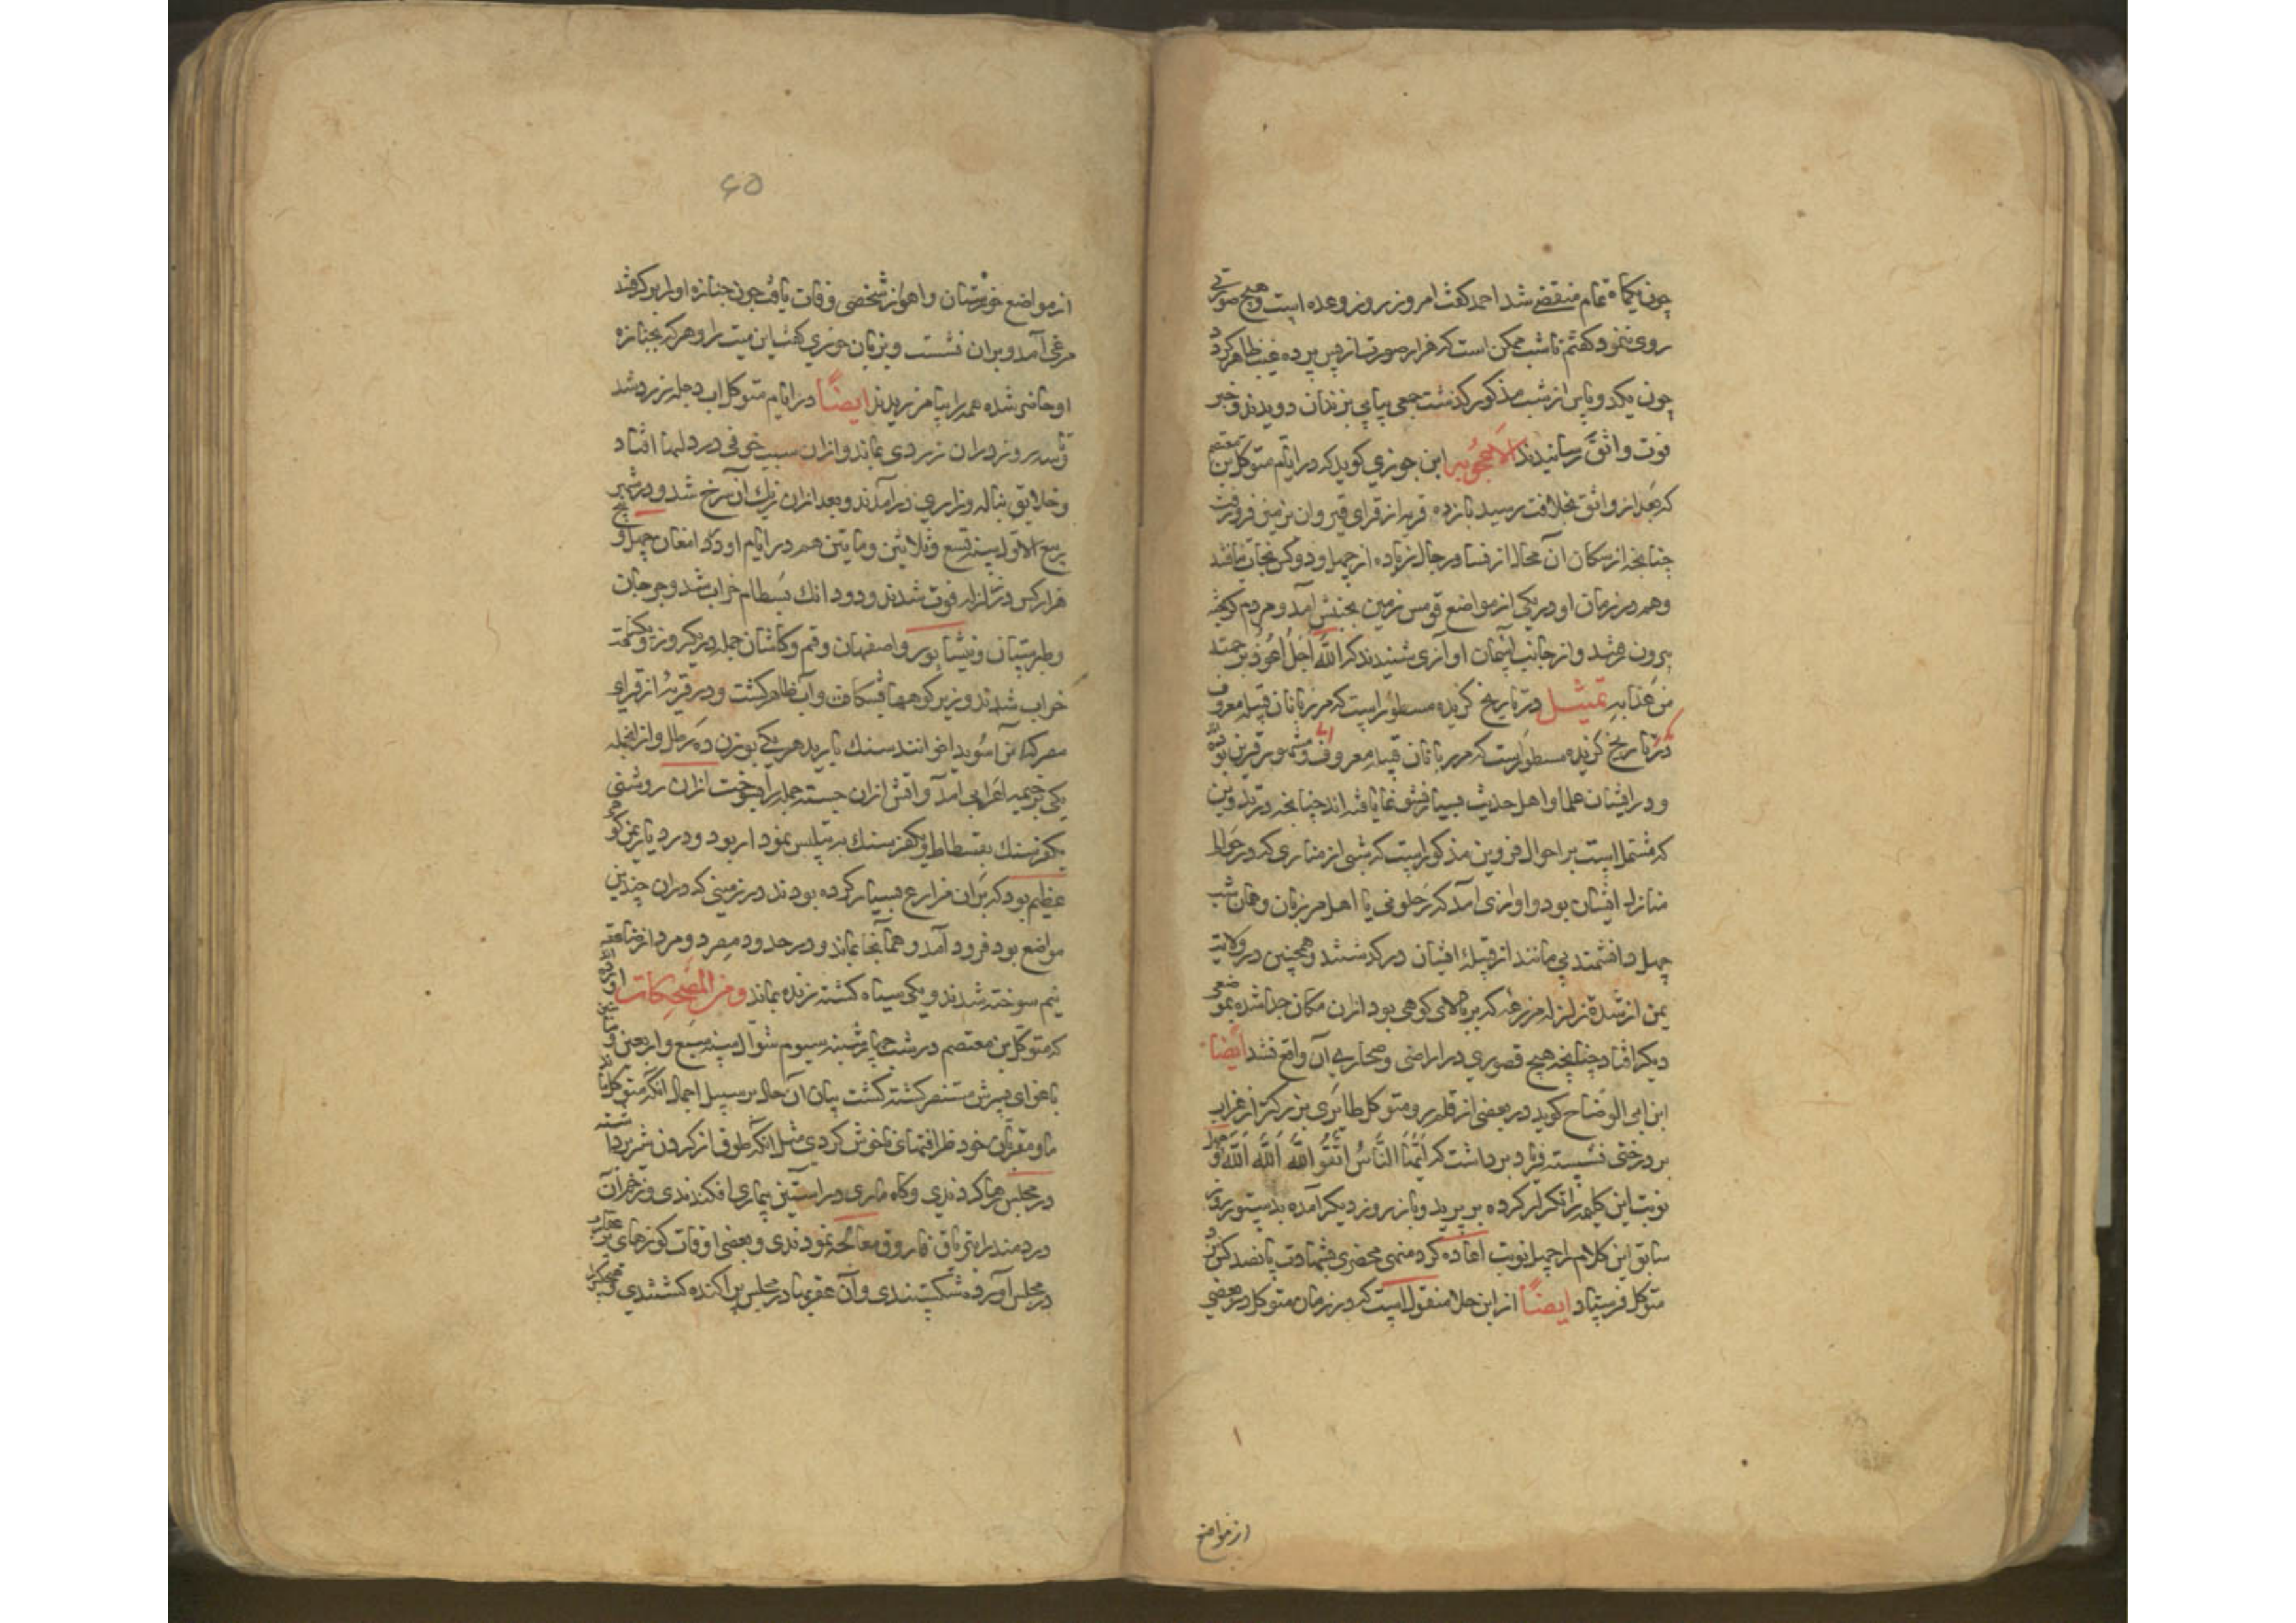 چون یکماه تمام منقضی شد احمد گفت امروز روز وعده است و هیچ صورتی
روی ننمود گفتم تا شب ممکن است که هزار صورت از پس پرده غیب ظاهر گردد
چون یکدو پاس از شب مذکور گذشت جمعی پیاپی بزندان دویدند و خبر
فوت واثق رسانیدند الاعجوبه ابن جوزی گوید که در ایام متوکل بن معتصم
که بعد از واثق بخلافت رسید یازده قریه از قرای قیروان بزمین فرو رفت
چنانچه از سکان آن محال از نسا و رجال زیاده از چهل و دو کس نجات نیافتند
و هم در زمان او در یکی از مواضع قومس زمین بجنبش آمد و مردم
بیرون رفتند و از جانب آسمان آوازی شنیدند که الله اجل اعوذ برحمته
من عذابه تمثیل در تاریخ گزیده مسطور است که مرزبانان قبیله معروف
در تاریخ گزیده مسطور است که مرزبانان قبیله معروف و مشهور قزین بوده
و در ایشان علما و اهل حدیث بسیار نشو نما یافته اند چنانچه در تدوین
که مشتمل است بر احوال قزوین مذکور است که شبی از مناری که در حوالی
منازل ایشان بود آوازی آمد که رحلونی یا اهل مرزبان و همان شب
چهل دانشمند بی مانند از قبیله ایشان در گذشتند و همچنین در ولایت
یمن از شدة زلزله مزرعه که بر بالای کوهی بود ازان مکان جدا شده بموضعی
دیگر افتاد چنانچه هیچ قصوری در اراضی و صحاری آن واقع نشد ایضا
ابن ابی الوضاح گوید در بعضی از قلمرو متوکل طایری بزرگتر از غراب
بر درختی نشسته فریاد برداشت که ایها الناس اتقوا الله الله الله و چهل
نوبت این کلمه را تکرار کرده بپرید و باز روز دیگر آمده بدستور روز
سابق این کلام را چهل نوبت اعاده کرد منهی محضری بشهادت پانصد کس نزد
متوکل فرستاد ایضاً از ابن حلا منقول است که در زمان متوکل در بعضی
از مواضع
۶۵
از مواضع خوزستان و اهواز شخصی وفات یافت چون جنازه او را بر گرفتند
مرغی آمد و بران نشست و بزبان خوزی گفت این میت را و هر که بجنازه
او حاضر شده همه را بیامرزیدند ایضاً در ایام متوکل آب دجله زرد شد
و سه روز دران زردی بماند و ازان سبب خوفی در دلها افتاد
و خلایق بناله و زاری درآمدند و بعد ازان رنک آن سرخ شد و در شهر
ربیع الاول سنه تسع و ثلاثین و مایتین هم در ایام او در دامغان چهل و پنج
هزار کس در زلزله فوت شدند و دو دانک بسطام خراب شد و جرجان
و طبرستان و نیشابور و اصفهان و قم و کاشان جمله در یکروز و یکساعت
خراب شدند و زیر کوهها بشکافت و آب ظاهر گشت و در قریه از قرای
مصر که آنرا سویدا خوانند سنک بارید هر یکی بوزن ده رطل و ازانجمله
یکی بر خیمه اعرابی آمد و آتش ازان جسته جمله را بسوخت ازان روشنی
یکفرسنک بفسطاط و یکفرسنک به تپلیس نمودار بود و در دیار یمن کوهی
عظیم بود که بران مزارع بسیار کرده بودند در زمینی که دران چندین
مواضع بود فرود آمد و همانجا بماند و در حدود مصر دو مرد از صاعقه
نیم سوخته شدند و یکی سیاه گشته زنده بماند و من المضحکات آورده اند
که متوکل بن معتصم در شب چهارشنبه سیوم شوال سنه سبع و اربعین و مایتین
باغوای پسرش منتصر کشته گشت بیان آن حال بر سبیل اجمال آنکه متوکل با ندما
و مقربان خود ظرافتهای ناخوش کردی مثل آنکه طوق از گردن شیر برداشته
در مجلس رها کردندی و گاه ماری در آستین بیماری افکندندی و زخم آن
دردمند را بتریاق فاروق معالجه نمودندی و بعضی اوقات کوزهای پر عقارب
در مجلس آورده شکستندی و آن عقربها در مجلس پراکنده گشتندی و هیچکس